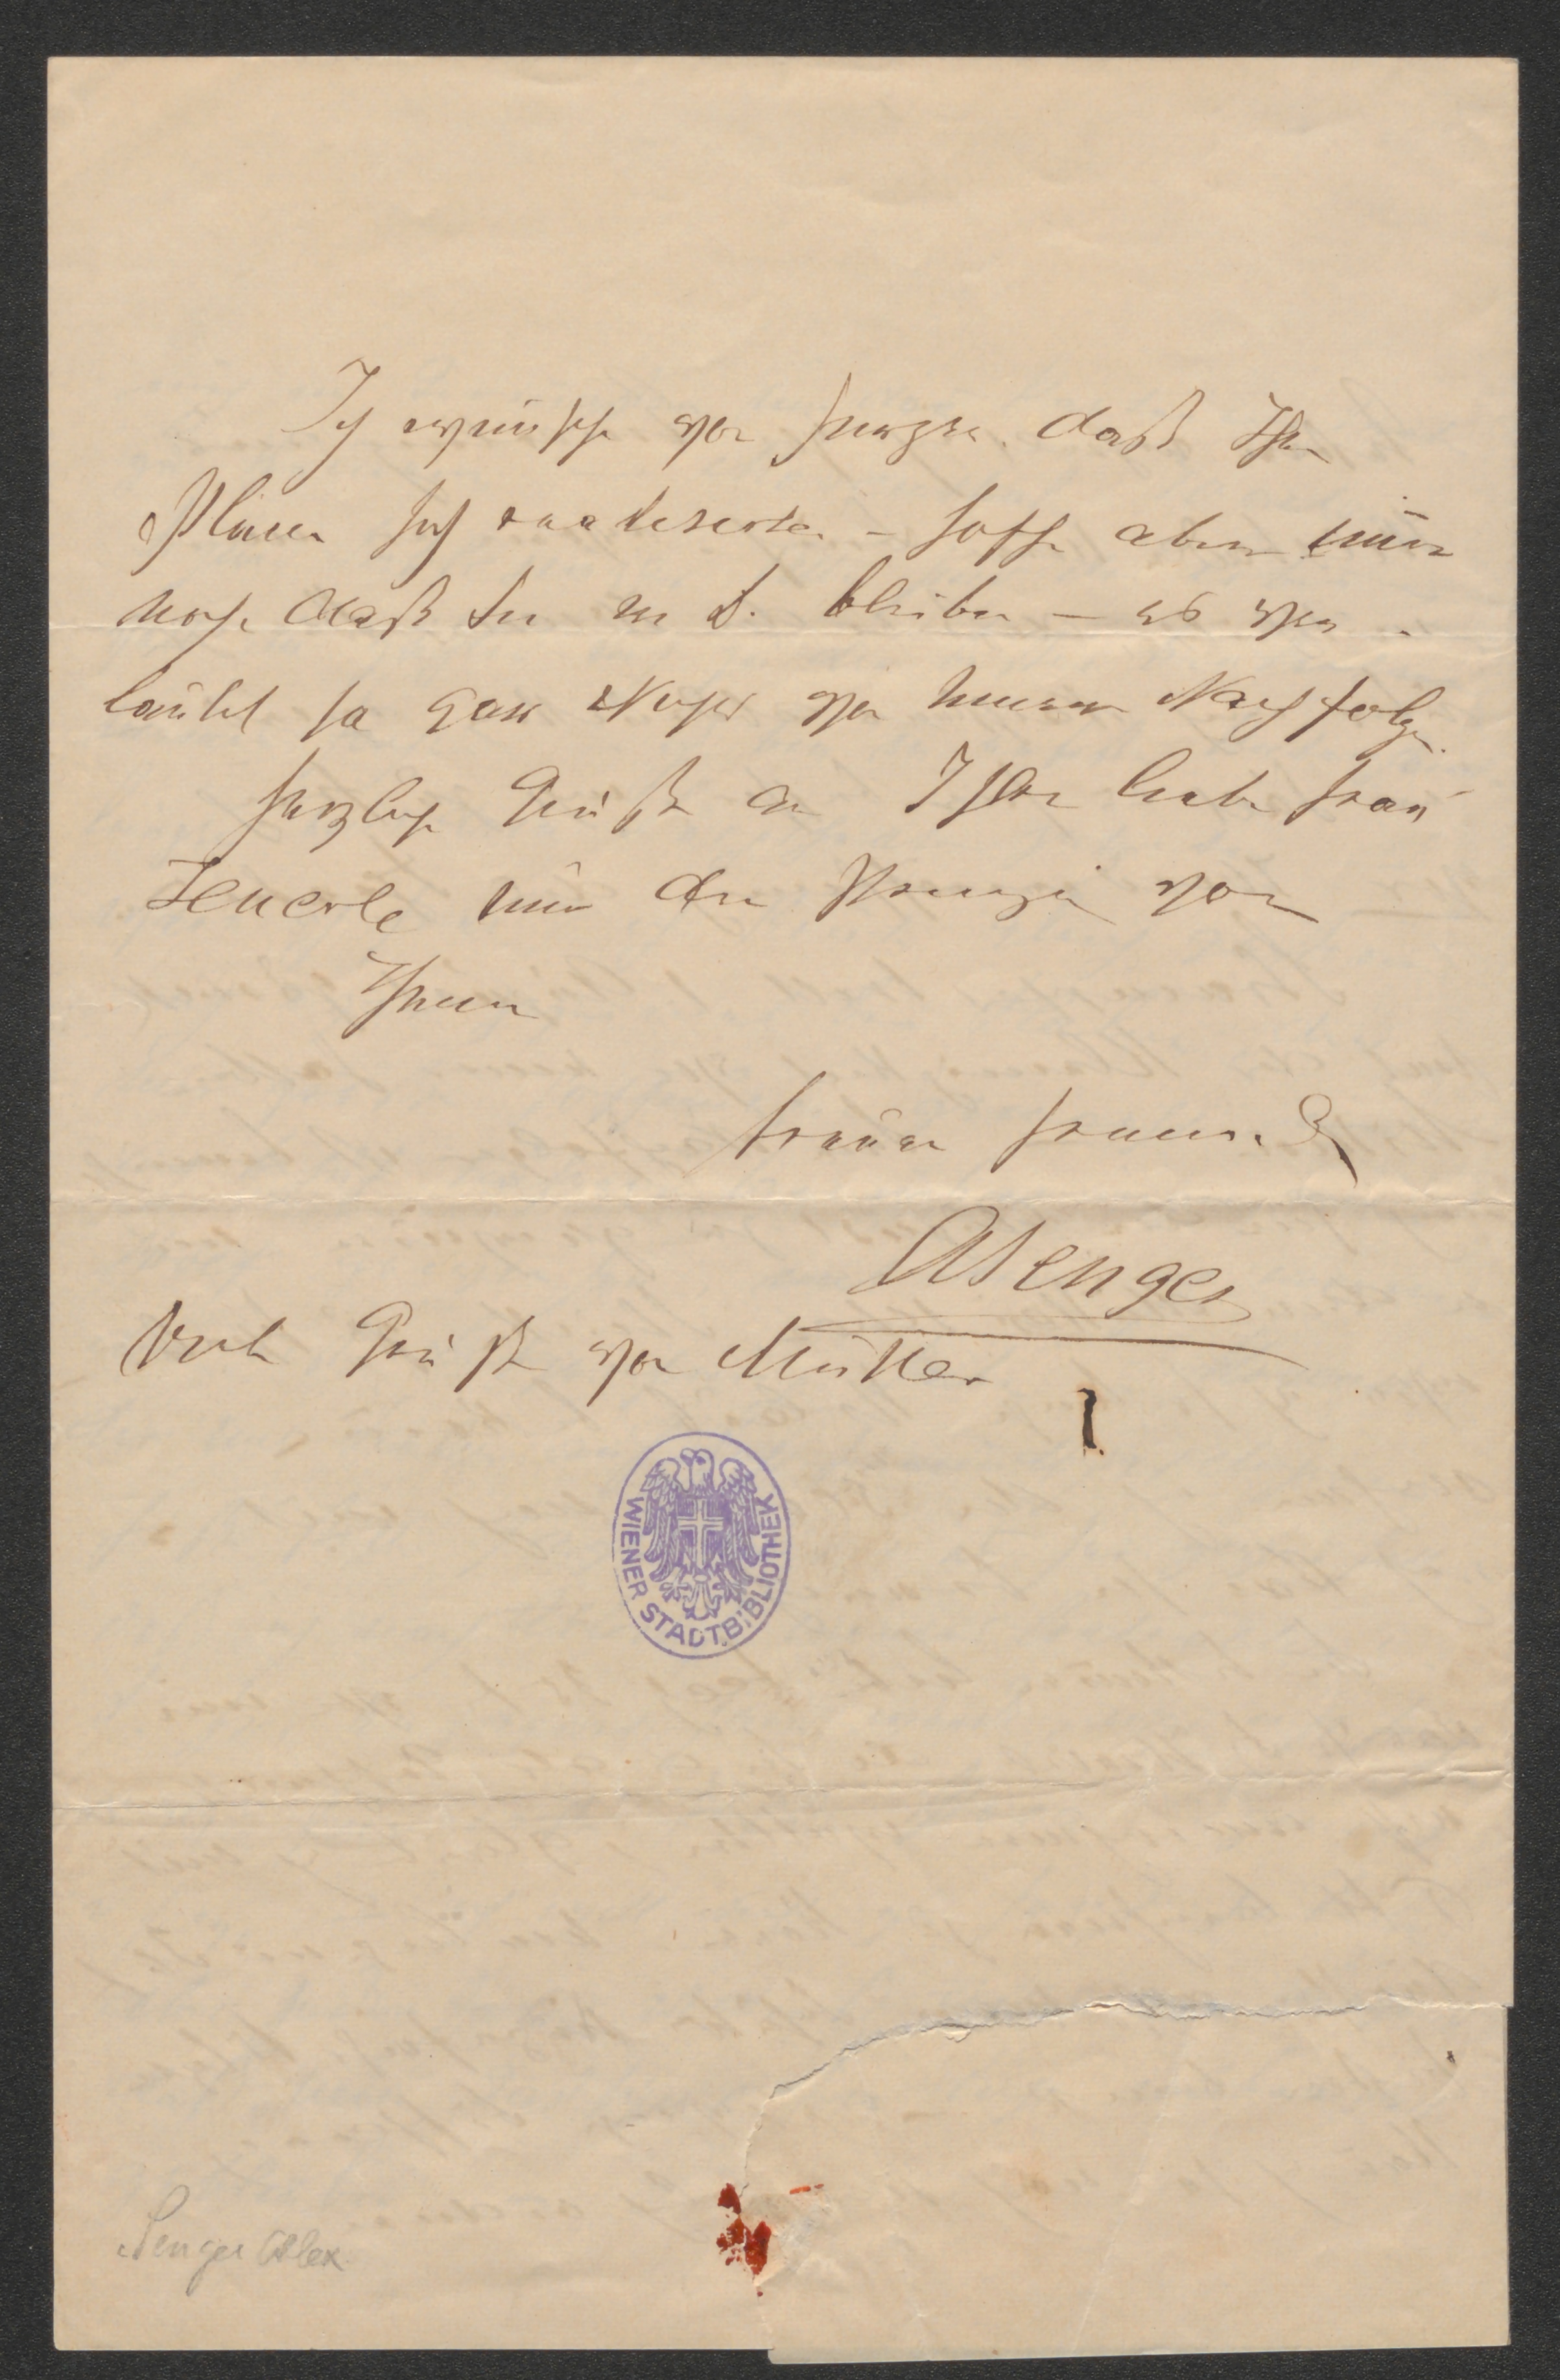 Ich wünsche von Herzen daß Ihre
Pläne sich realisierten – hoffe aber immer
noch daß Sie in D. bleiben – es ver-
lautet ja gar Nichts von einem Nachfolger.
Herzliche Grüße an Ihre liebe Frau
und die Prinzeß von
Ihrem
treuen Freund
ASenger
Viele Grüße von Mutter
WIENER STADTBIBLIOTHEK
Senger Alex